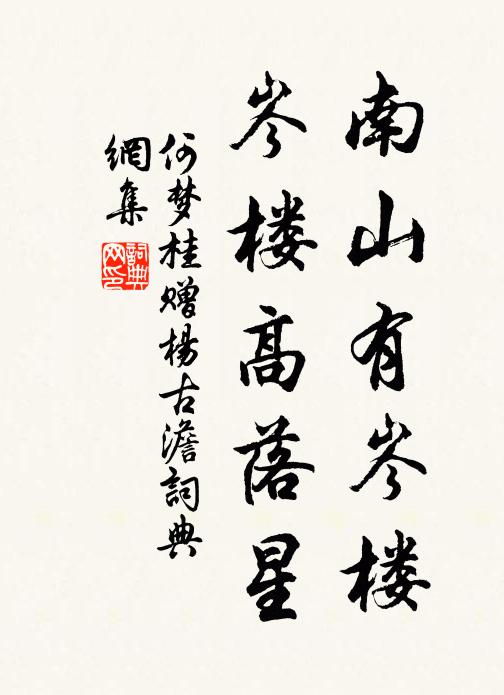 南山有岑楼
岑楼高落星
何梦桂赠楊古澹詞典
網集
詞典
网印